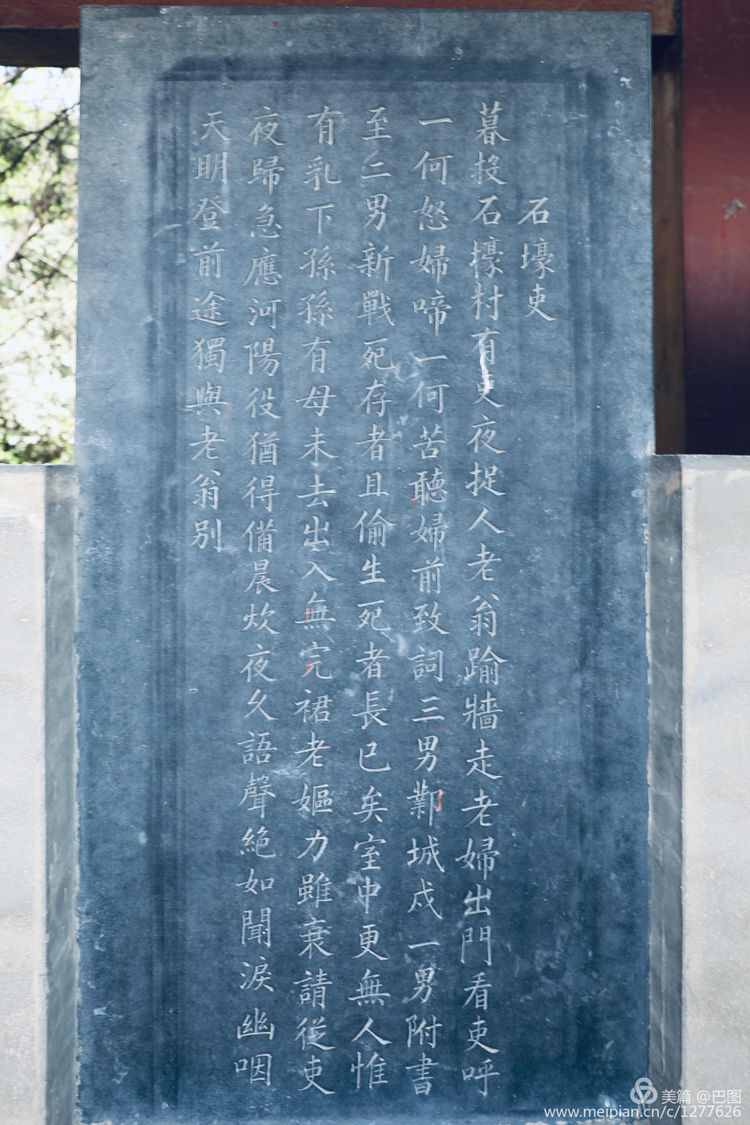 石壕吏
暮投石壕村有吏夜捉人老翁踰牆走老婦出門看吏呼
一何怒婦啼一何苦聽婦前致詞三男鄴城戍一男附書
至二男新戰死存者且偷生死者長已矣室中更無人惟
有乳下孫孫有母未去出入無完裙老嫗力雖衰請從吏
夜歸急應河陽役猶得備晨炊夜久語聲絕如聞淚幽咽
天明登前途獨與老翁別
美篇 @巴图
www.meipian.cn/c/1277626